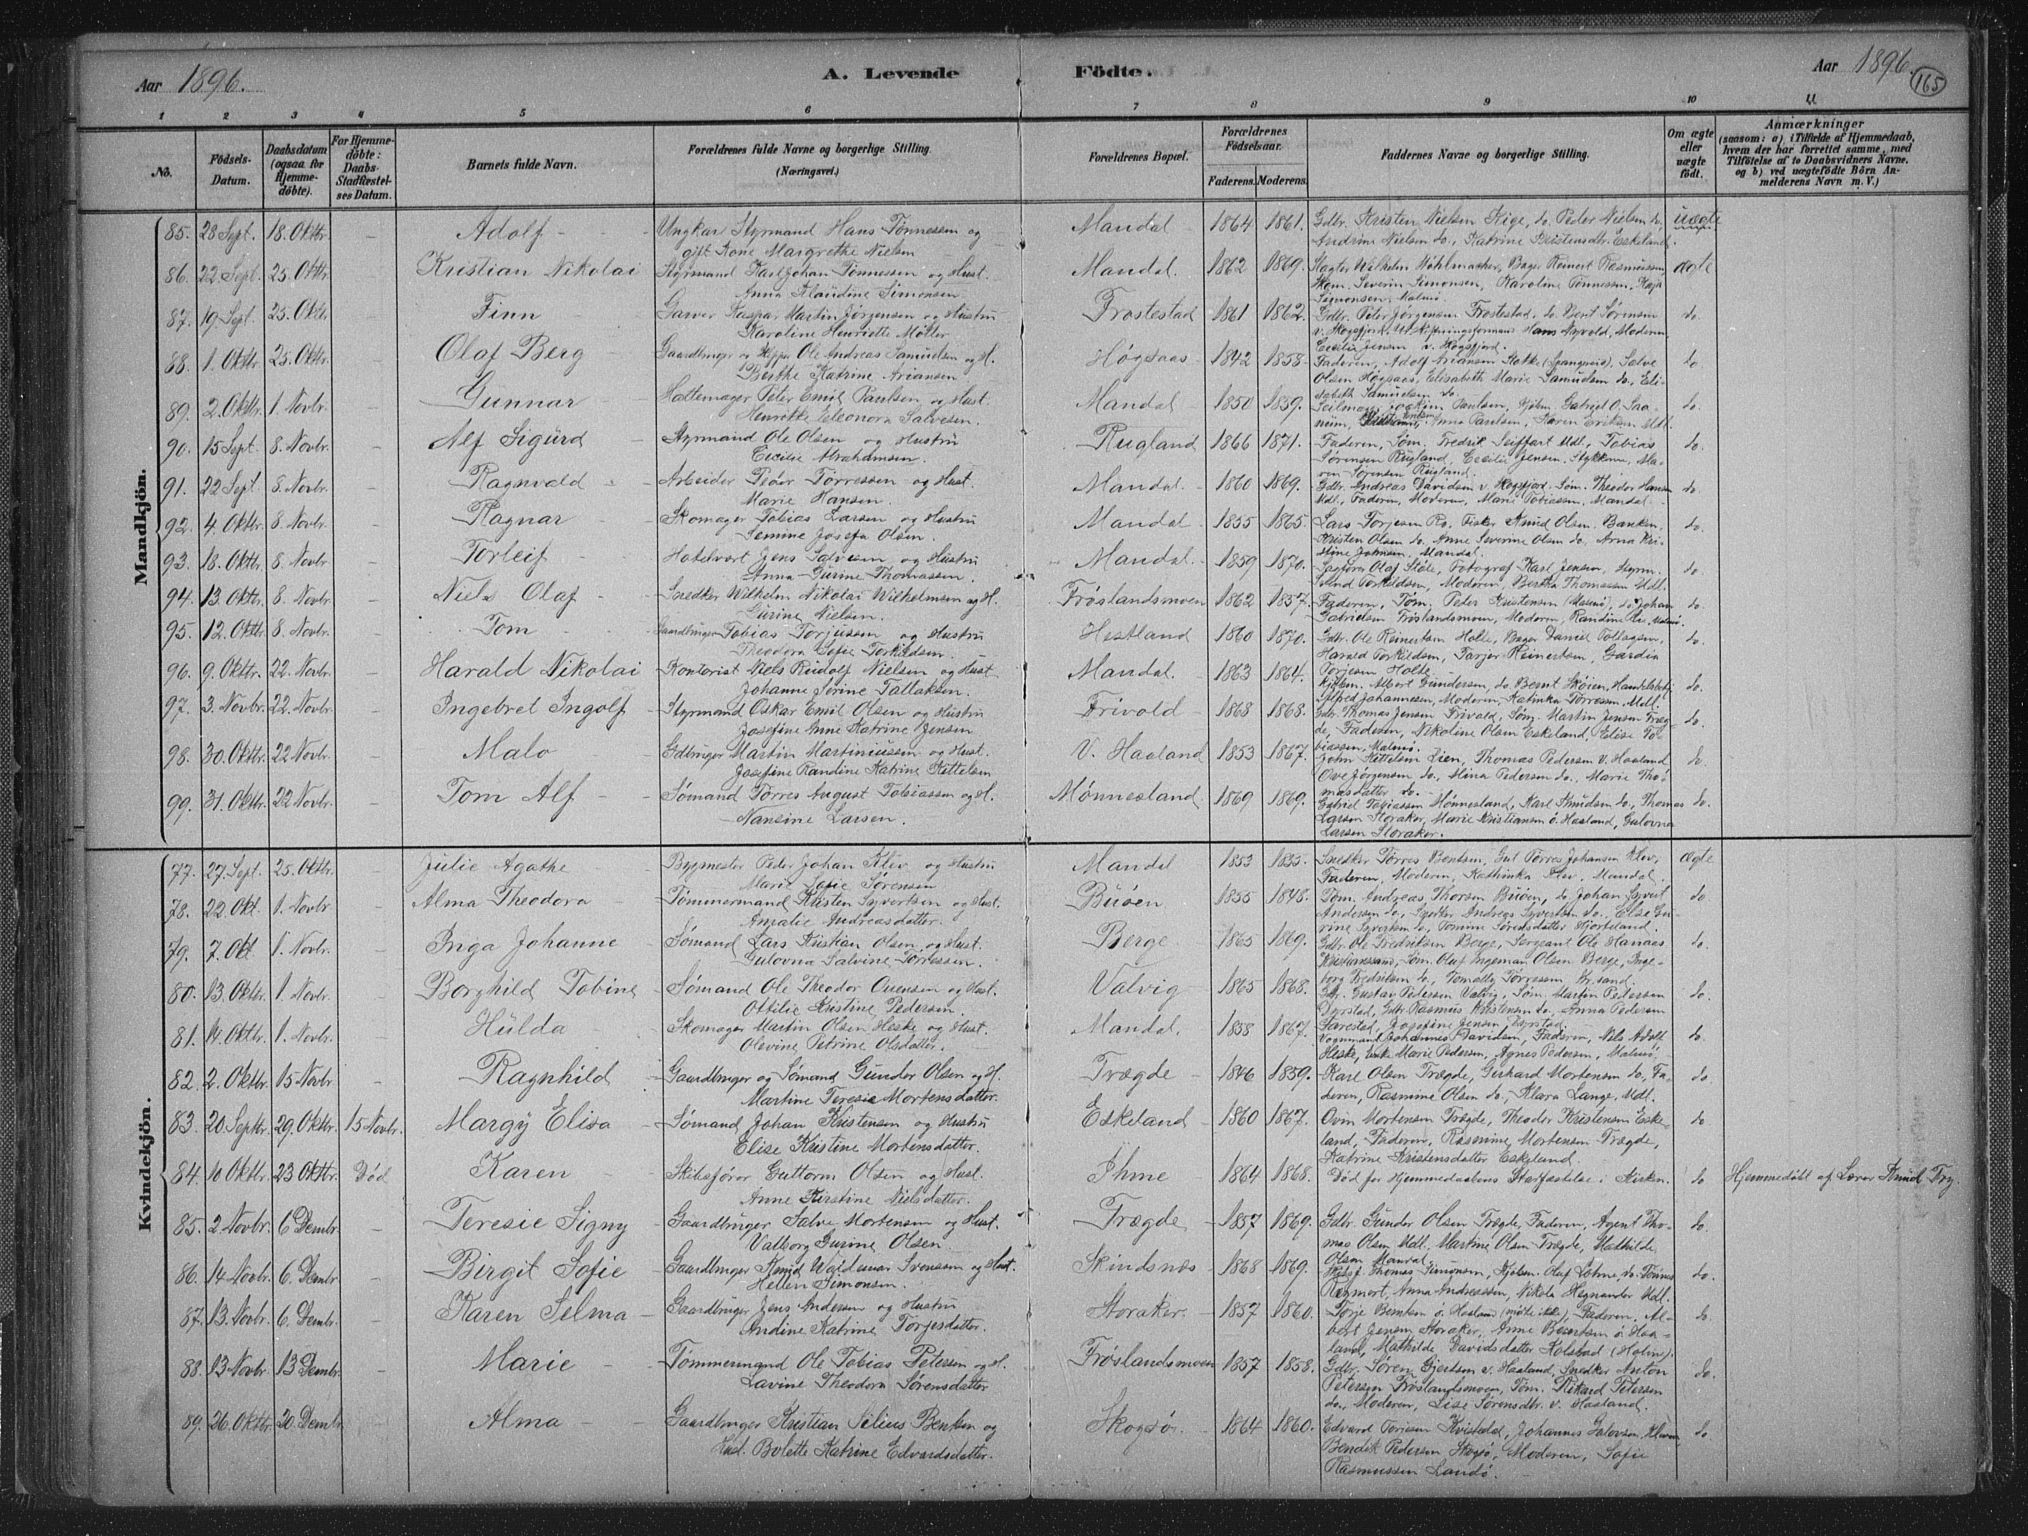 Aar 1896.
A. Levende
Födte.
Aar 1896.
165
1 2 3 4 5 6 7 8 9 10 11
No.
Födsels-Datum.
Daabsdatum (ogsaa for Hjemmedöbte).
For Hjemmedöbte: Daabs-Stadfæstelses Datum.
Barnets fulde Navn.
Forældrenes fulde Navne og borgerlige Stilling. (Næringsvei.)
Forældrenes Bopæl.
Forældrenes Födselsaar.
Faderens. Moderens.
Faddernes Navne og borgerlige Stilling.
Om ægte eller uægte födt.
Anmærkninger
(saasom: a) i Tilfælde af Hjemmedaab, hvem der har forrettet samme, med Tilföielse af to Daabsvidners Navne. og b) ved uægtefödte Börn Anmelderens Navn m. V.)
Mandkjön.
85. 28 Sept. 18. Oktbr. - Adolf - Ungkar Styrmand Hans Tønnessen og gift Kone Margrethe Nielsen Mandal 1864 1861. Gdbr. Kristen Nielsen Kige, do. Peder Nielsen do. Andrine Nielsen do., Katrine Kristensdtr. Eskeland. uægte
86. 22 Sept. 25. Oktbr. - Kristian Nikolai Styrmand Karl Johan Tønnessen og Hust. Anna Klaudine Simonsen Mandal. 1862 1869. Slagter Wilhelm Møhlmacher, Bager Reinert Rasmussen, Skom. Severin Simonsen, Karoline Tønnessen, Kaja Simonsen, Malmø. ægte
87. 19 Sept. 25. Oktbr. - Finn - Garver Kaspar Martin Jørgensen og Hustru Karoline Henriette Møller Frostestad 1861 1862. Gdbr. Peter Jørgensen Frostestad, do. Bent Sørensen v. Skogsfjord, Udskiftningsformand Hans Nyvold, Moderen, Cecilie Jensen v. Skogsfjord. do.
88. 1. Oktbr 25. Oktbr. - Olaf Berg - Gaardbruger og Skipper Ole Andreas Samuelsen og H. Berthe Katrine Ariansen Høgsaas 1842 1858. Faderen, Adolf Ariansen Stokke (Spangereid), Salve Olsen Høgsaas, Elisabeth Marie Samuelsen do., Elisabeth Samuelsen do. do
89. 2. Oktbr. 1. Novbr. - Gunnar - Hattemager Peter Emil Paulsen og Hust. Henrikke Eleonora Salvesen. Mandal 1850 1859. Seilmager Joakim Paulsen, Kjøbm. Gabriel O. Saanum, Anna Paulsen, Karen Eriksen Mdl. do.
90. 15 Sept. 8. Novbr. - Alf Sigurd - Styrmand Ole Olsen og Hustru Cecilie Abrahamsen. Rugland 1866 1871. Faderen, Søm. Fredrik Seiffart Mdl, Tobias Sørensen Rugland, Cecilie Jensen, Stykkene, Maren Sørensen Rugland. do.
91. 22 Sept. 8. Novbr. - Ragnvald - Arbeider Peder Tørressen og Hust. Marie Hansen. Mandal 1860 1869. Gdbr. Andreas Davidsen v. Skogsfjord, Søm. Theodor Hansen Mdl, Faderen, Moderen, Marie Tobiassen, Mandal. do.
92. 4. Oktbr. 8. Novbr. - Ragnar - Skomager Tobias Larsen og Hustru Semine Josefa Olsen. Mandal 1855 1865. Lars Torjesen Ro, Fisker Knud Olsen, Banken, Kristen Olsen do. Anne Severine Olsen do. Anna Kristine Johnsen, Mandal. do.
93. 18. Oktbr. 8. Novbr - Torleif - Hotelvært Jens Salvesen og Hustru Anna Gurine Thomassen. Mandal 1859 1870. Sagfører Olaf Støle, Fotograf Karl Jensen, Styrm. Torkildsen, Moderen, Bertha Thomassen Mdl. do.
94. 13. Oktbr. 8. Novbr - Niels Olaf - Snedker Wilhelm Nikolai Wilhelmsen og H. Gurine Nielsen. Frøslandsmoen 1862 1857. Faderen, Tøm. Peder Kristensen (Malmø), do Johan Gabrielsen Frøslandsmoen, Moderen, Randine Ro, Malmø. do.
95. 12. Oktbr. 8. Novbr. - Tom - Gaardbruger Tobias Torjussen og Hustru Theodora Sofie Torkildsen. Hestland 1860 1870. Gdbr. Ole Reinertsen Holte, Bager Daniel Tollagsen, Harald Torkildsen, Tarjer Reinertsen, Gardia Torjesen Holte. do.
96. 9. Oktbr. 22. Novbr. - Harald Nikolai - Kontorist Niels Rudolf Nielsen og Hust. Johanne Jørine Tallaksen. Mandal. 1863 1864. Kjøbm. Albert Gundersen, do. Bernt Skøien, Handelsbetj. Alfred Johannesen, Moderen, Katinka Tørresen, Mdl. do.
97. 3. Novbr. 22. Novbr. - Ingebret Ingolf - Styrmand Oskar Emil Olsen og Hustru Josefine Anne Katrine Jensen Frivold - 1868 1868. Gdbr. Thomas Jensen Frivold, Søm. Martin Jensen Trægde, Faderen, Nikoline Olsen Eskeland, Elise Tobiassen, Malmø. do.
98. 30. Oktbr. 22 Novbr. - Malo - Gdbruger Martin Martiniussen og Hust. Josefine Randine Katrine Kittelsen V. Haaland 1853 1867. John Kittelsen Lien, Thomas Pedersen V. Haaland Ove Jørgensen do., Mina Pedersen do., Marie Thomasdatter do. do.
99. 31. Oktbr. 22 Novbr. - Tom Alf - Sømand Tørres August Tobiassen og H. Nansine Larsen. Mønnesland 1869 1869. Gabriel Tobiassen Mønnesland, Karl Knudsen do., Thomas Larsen Storaker, Marie Kristiansen ö. Haaland, Gulovna Larsen Storaker. do.
Kvindekjön.
77. 27. Sept. 25. Oktbr. - Julie Agathe Bygmester Peder Johan Klev og Hustru Marie Sofie Sørensen Mandal 1853 1855. Snedker Tørres Bentsen, Gul. Tørres Johansen Klev, Faderen, Moderen, Kathinka Klev, Mandal. ægte
78. 22. Okt. 1. Novbr - Alma Theodora - Tømmermand Kristen Syvertsen og Hust. Amalie Andreasdatter. Buøen 1855 1848. Tøm. Andreas Thorsen Buøen, do Johan Syvert Andersen do., Snedker Andreas Syvertsen do., Else Gurine Syvertsen do., Tomine Sørensdatter Hjorteland. do
79. 7. Okt. 1. Novbr. - Inga Johanne - Sømand Lars Kristian Olsen og Hust. Gulovna Salvine Tørressen. Berge 1865 1869. Gdbr. Ole Fredriksen Berge, Sergeant Ole Hanaas Kristianssand, Søm. Oluf Ingeman Olsen Berge, Ingeborg Fredriksen do., Tomally Tørressen Kr.sand. do.
80. 13. Oktbr. 1. Novbr. - Borghild Tobine - Sømand Ole Theodor Ovensen og Hust. Ottilie Kristine Pedersen. Valvig - 1865 1868. Gdbr. Gustav Pedersen Valvig, Søm. Martin Pedersen Dyrstad, Gdbr. Rasmus Kristensen do., Anna Pedersen Stavestad, Josefine Jensen Dyrstad. do.
81. 14. Oktbr. 1. Novbr. - Hulda - Skomager Martin Olsen Heske og Hust. Olevine Petrine Olsdatter. Mandal. 1858 1867. Vognmand Johannes Davidsen, Faderen, Nils Adolf Heske, Marie Pedersen, Agnes Pedersen, Malmø. do.
82. 2. Oktbr. 15 Novbr. - Ragnhild Gaardbruger og Sømand Gunder Olsen og H. Martine Teresie Mortensdatter. Trægde 1846 1859. Karl Olsen Trægde, Gerhard Mortensen do., Faderen, Rasmine Olsen do., Klara Lange, Mdl. do
83. 20 Septbr. 29. Oktbr. 15 Novbr. Margy Elisa - Sømand Johan Kristensen og Hustru Elise Kristine Mortensdatter. Eskeland 1860 1867. Ovin Mortensen Trægde, Theodor Kristensen Eskeland, Faderen, Rasmine Mortensen Trægde, Katrine Kristensdatter Eskeland. do
84. 10 Oktbr. 23 Oktbr. Död Karen - Skibsfører Guttorm Olsen og Hust. Anne Kirstine Nielsdatter. Ihme 1864 1868. Död før Hjemmedaabens Stadfæstelse i Kirken. do Hjemmedöbt af Lærer Knud Try
85. 2. Novbr. 6 Dembr. - Teresie Signy - Gaardbruger Salve Mortensen og Hust. Valborg Gurine Olsen Trægde 1857 1869. Gdbr. Gunder Olsen Trægde, Faderen, Agent Thomas Olsen Mdl. Martine Olsen Trægde, Mathilde Olsen Mandal. do.
86. 14. Novbr. 6. Dembr. - Birgit Sofie - Gaardbruger Knud Waldemar Svensen og Hust. Helen Simonsen. Skindsnæs 1868 1869. Skibsf. Thomas Simonsen, Kjøbm. Olaf Lohne, do. Tönnes Rehmert, Anna Andreassen, Nikola Hegnander Mdl. do.
87. 13. Novbr. 6. Dembr. - Karen Selma - Gaardbruger Jens Andersen og Hustru Andine Katrine Torjesdatter. Storaker. 1857 1860. Torje Bentsen ö. Haaland (mötte ikke), Faderen, Albert Jensen Storaker, Anne Bertsen ö. Haaland, Mathilde Davidsdatter Kolsbad (Holum). do
88. 13 Novbr. 13 Dembr. - Marie - Tømmermand Ole Tobias Petersen og H. Lavine Theodora Sørensdatter Frøslandsmoen 1857 1858. Gdbr. Søren Gjertsen v. Haaland, Snedker Anton Petersen Frøslandsmoen, Tøm. Rikard Petersen do., Moderen, Lise Sørensdtr. v. Haaland. do.
89. 26. Oktbr. 20. Dembr. - Alma - Gaardbruger Kristian Silius Bentsen og Hust. Bolette Katrine Edvardsdatter. Skogsø. 1864 1860. Edvard Torjesen Kvisedal, Johannes Salvesen Kleven Bendik Pedersen Skogsø, Moderen, Sofie Rasmussen Landø. do.